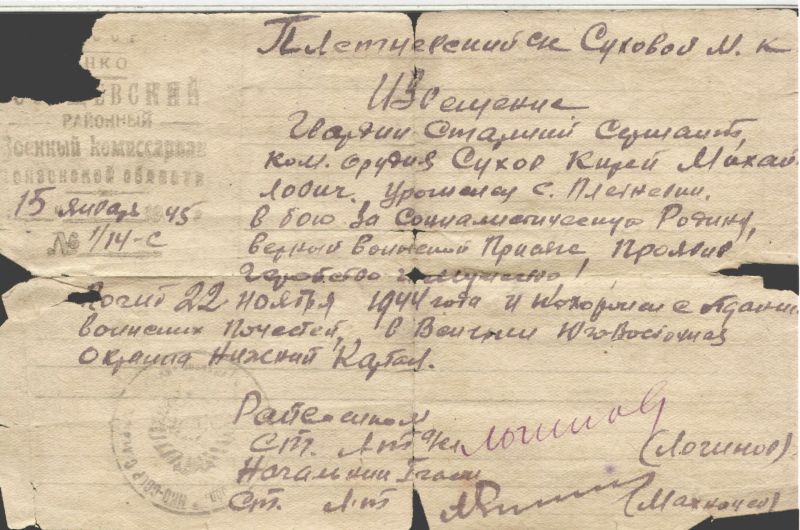 НКО
РАЙОННЫЙ
Военный Комиссариат
области
15 января 1945
№ 1/14-с
Плетневский с/с Суховой М. К
Извещение
Гвардии Старший Сержант,
ком. орудия Сухов Кирей Михай
лович. уроженец с. Плетневки.
в бою за Социалистическую Родину,
верный воинской Присяге, Проявив
Геройство и мужество,
Погиб 22 ноября 1944 года и похоронен с отданием
воинских Почестей, в Венгрии Юго Восточная
окраина Нижний
Райвоенком
Ст. Л-т
Логинов
(Логинов)
Начальник 1 части
Ст. Л-т